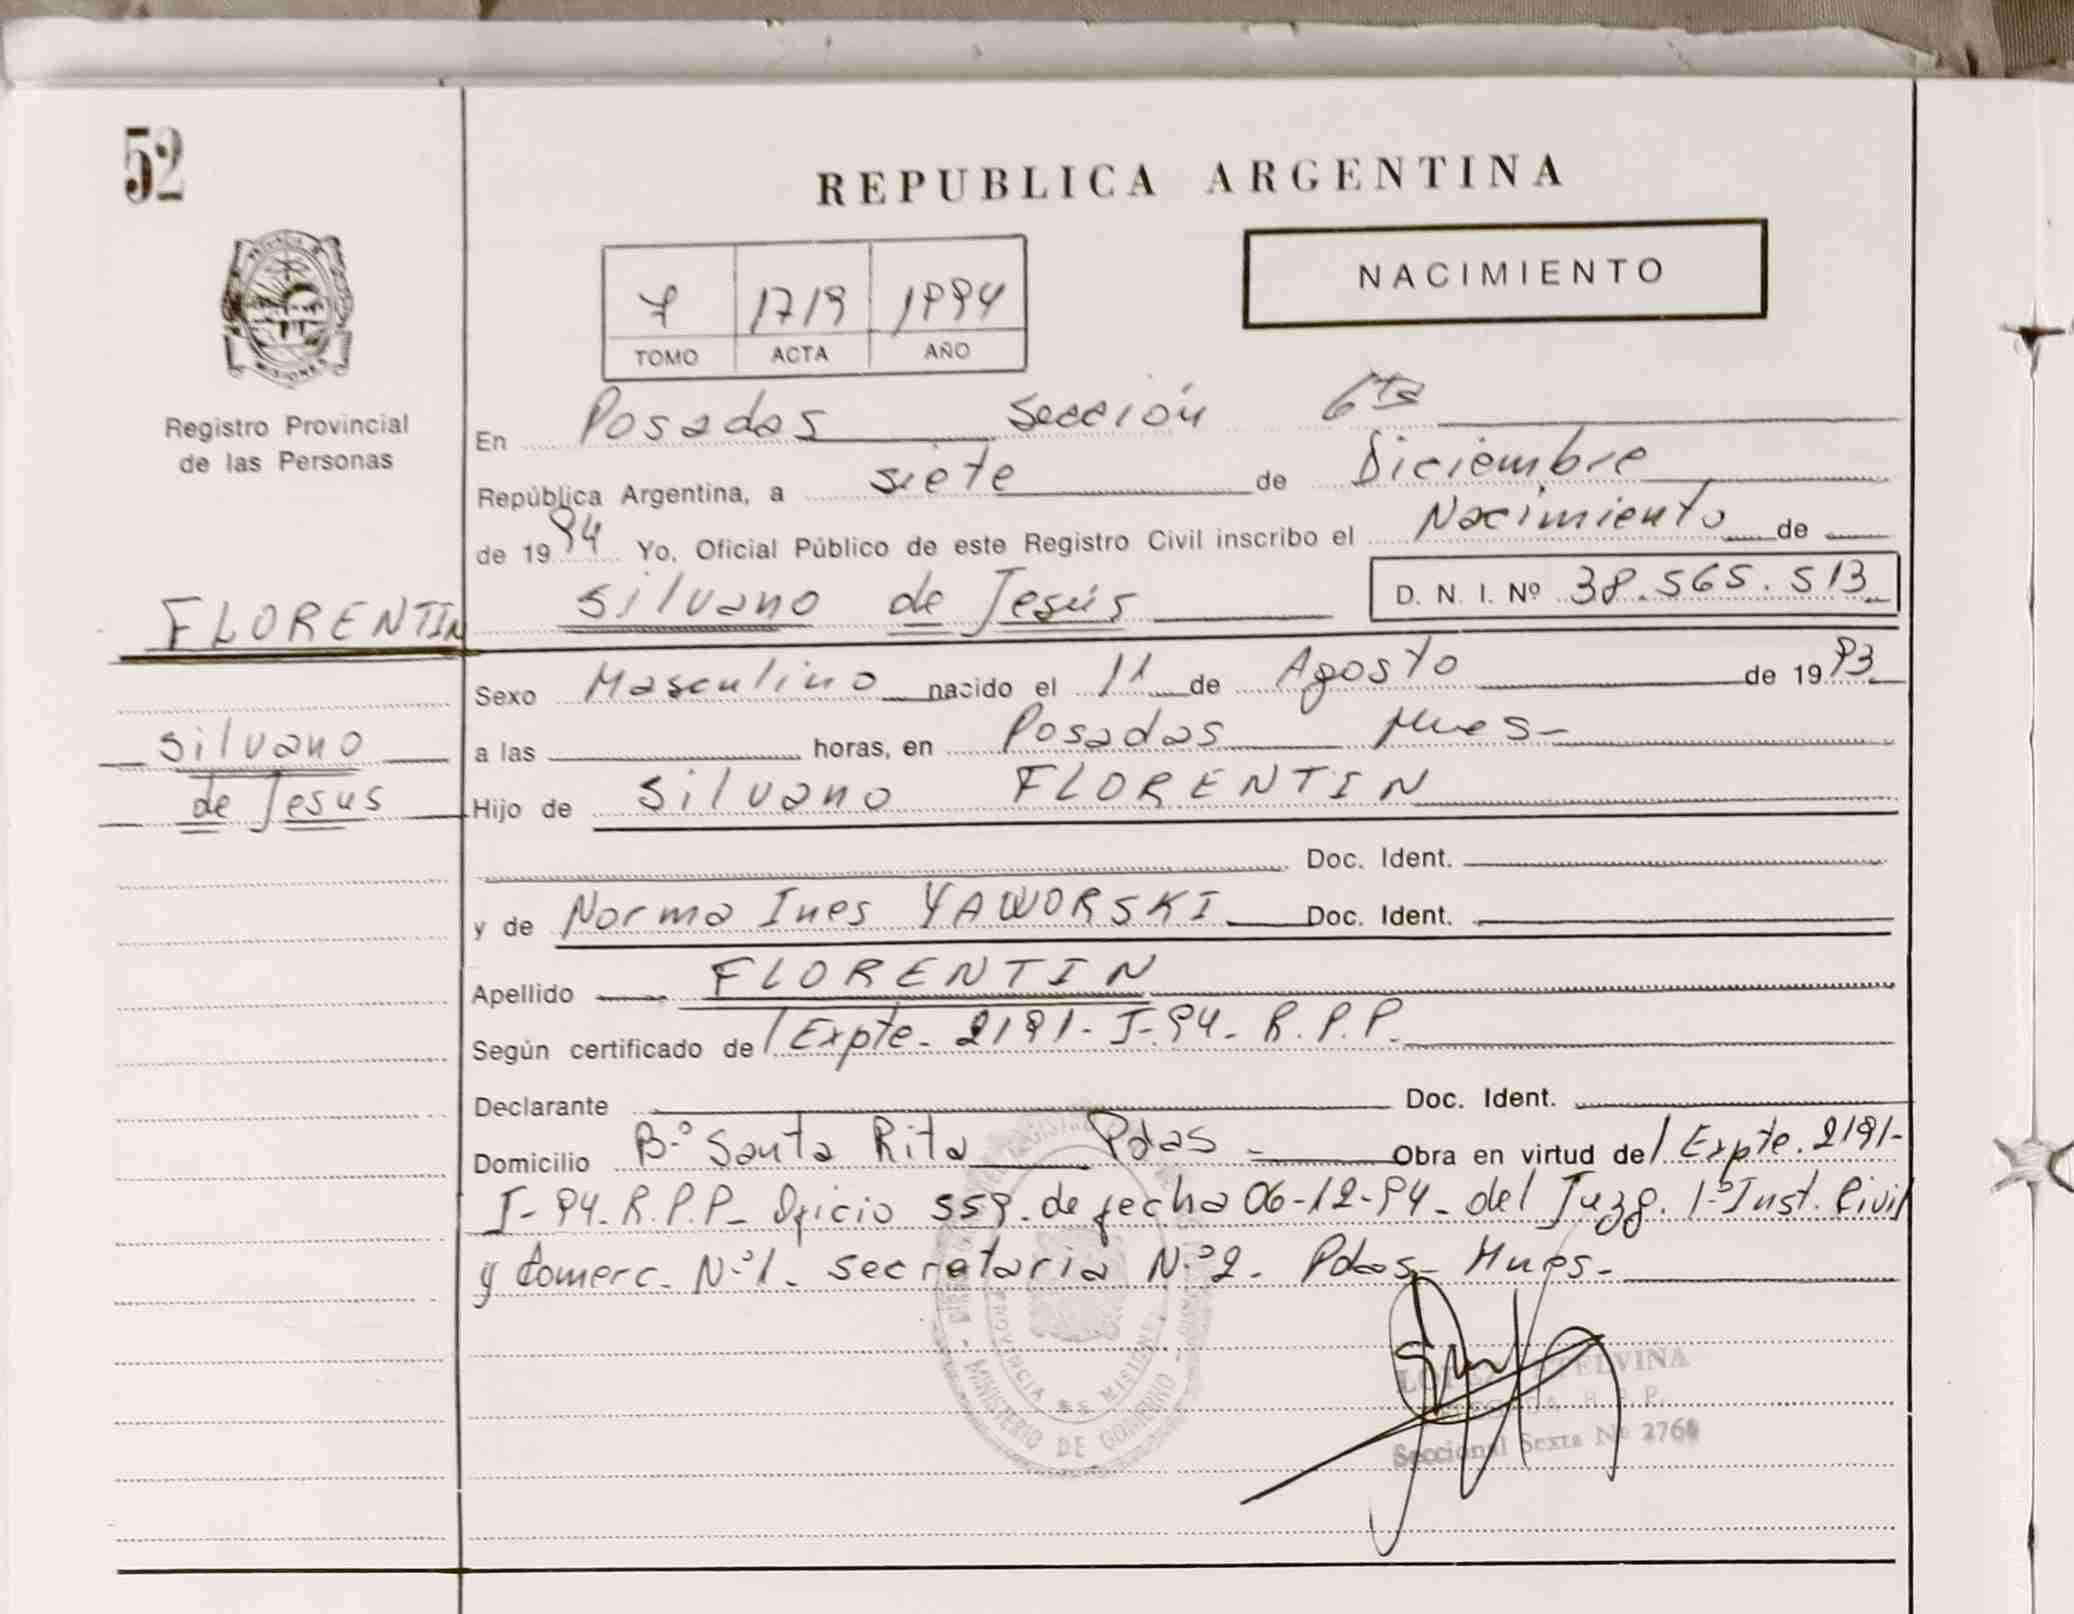 52
REPUBLICA ARGENTINA
NACIMIENTO
7 1719 1994
TOMO ACTA AÑO
Registro Provincial
de las Personas
En Posadas Sección 6ta
República Argentina, a siete de Diciembre
de 1994 Yo, Oficial Público de este Registro Civil inscribo el Nacimiento de
FLORENTIN Silvano de Jesús D. N. I. Nº 38.565.513
Sexo Masculino nacido el 11 de Agosto de 1993
Silvano
a las horas, en Posadas Mnes-
de Jesus
Hijo de Silvano FLORENTIN
Doc. Ident.
y de Norma Ines YAWORSKI Doc. Ident.
Apellido FLORENTIN
Según certificado de/ Expte- 2191- I-94- R.P.P.
Declarante Doc. Ident.
Domicilio B.º Santa Rita Pdas - Obra en virtud de/ Expte. 2191-
I-94. R.P.P- Oficio 559. de fecha 06-12-94- del Juzg. 1-º Inst. Civil
y Comerc- N.º1- Secretaria N.º2- Pdas- Mnes-
PROVINCIA DE MISIONES
MINISTERIO DE GOBIERNO
ELVINA
R. P. P.
Seccional Sexta Nº